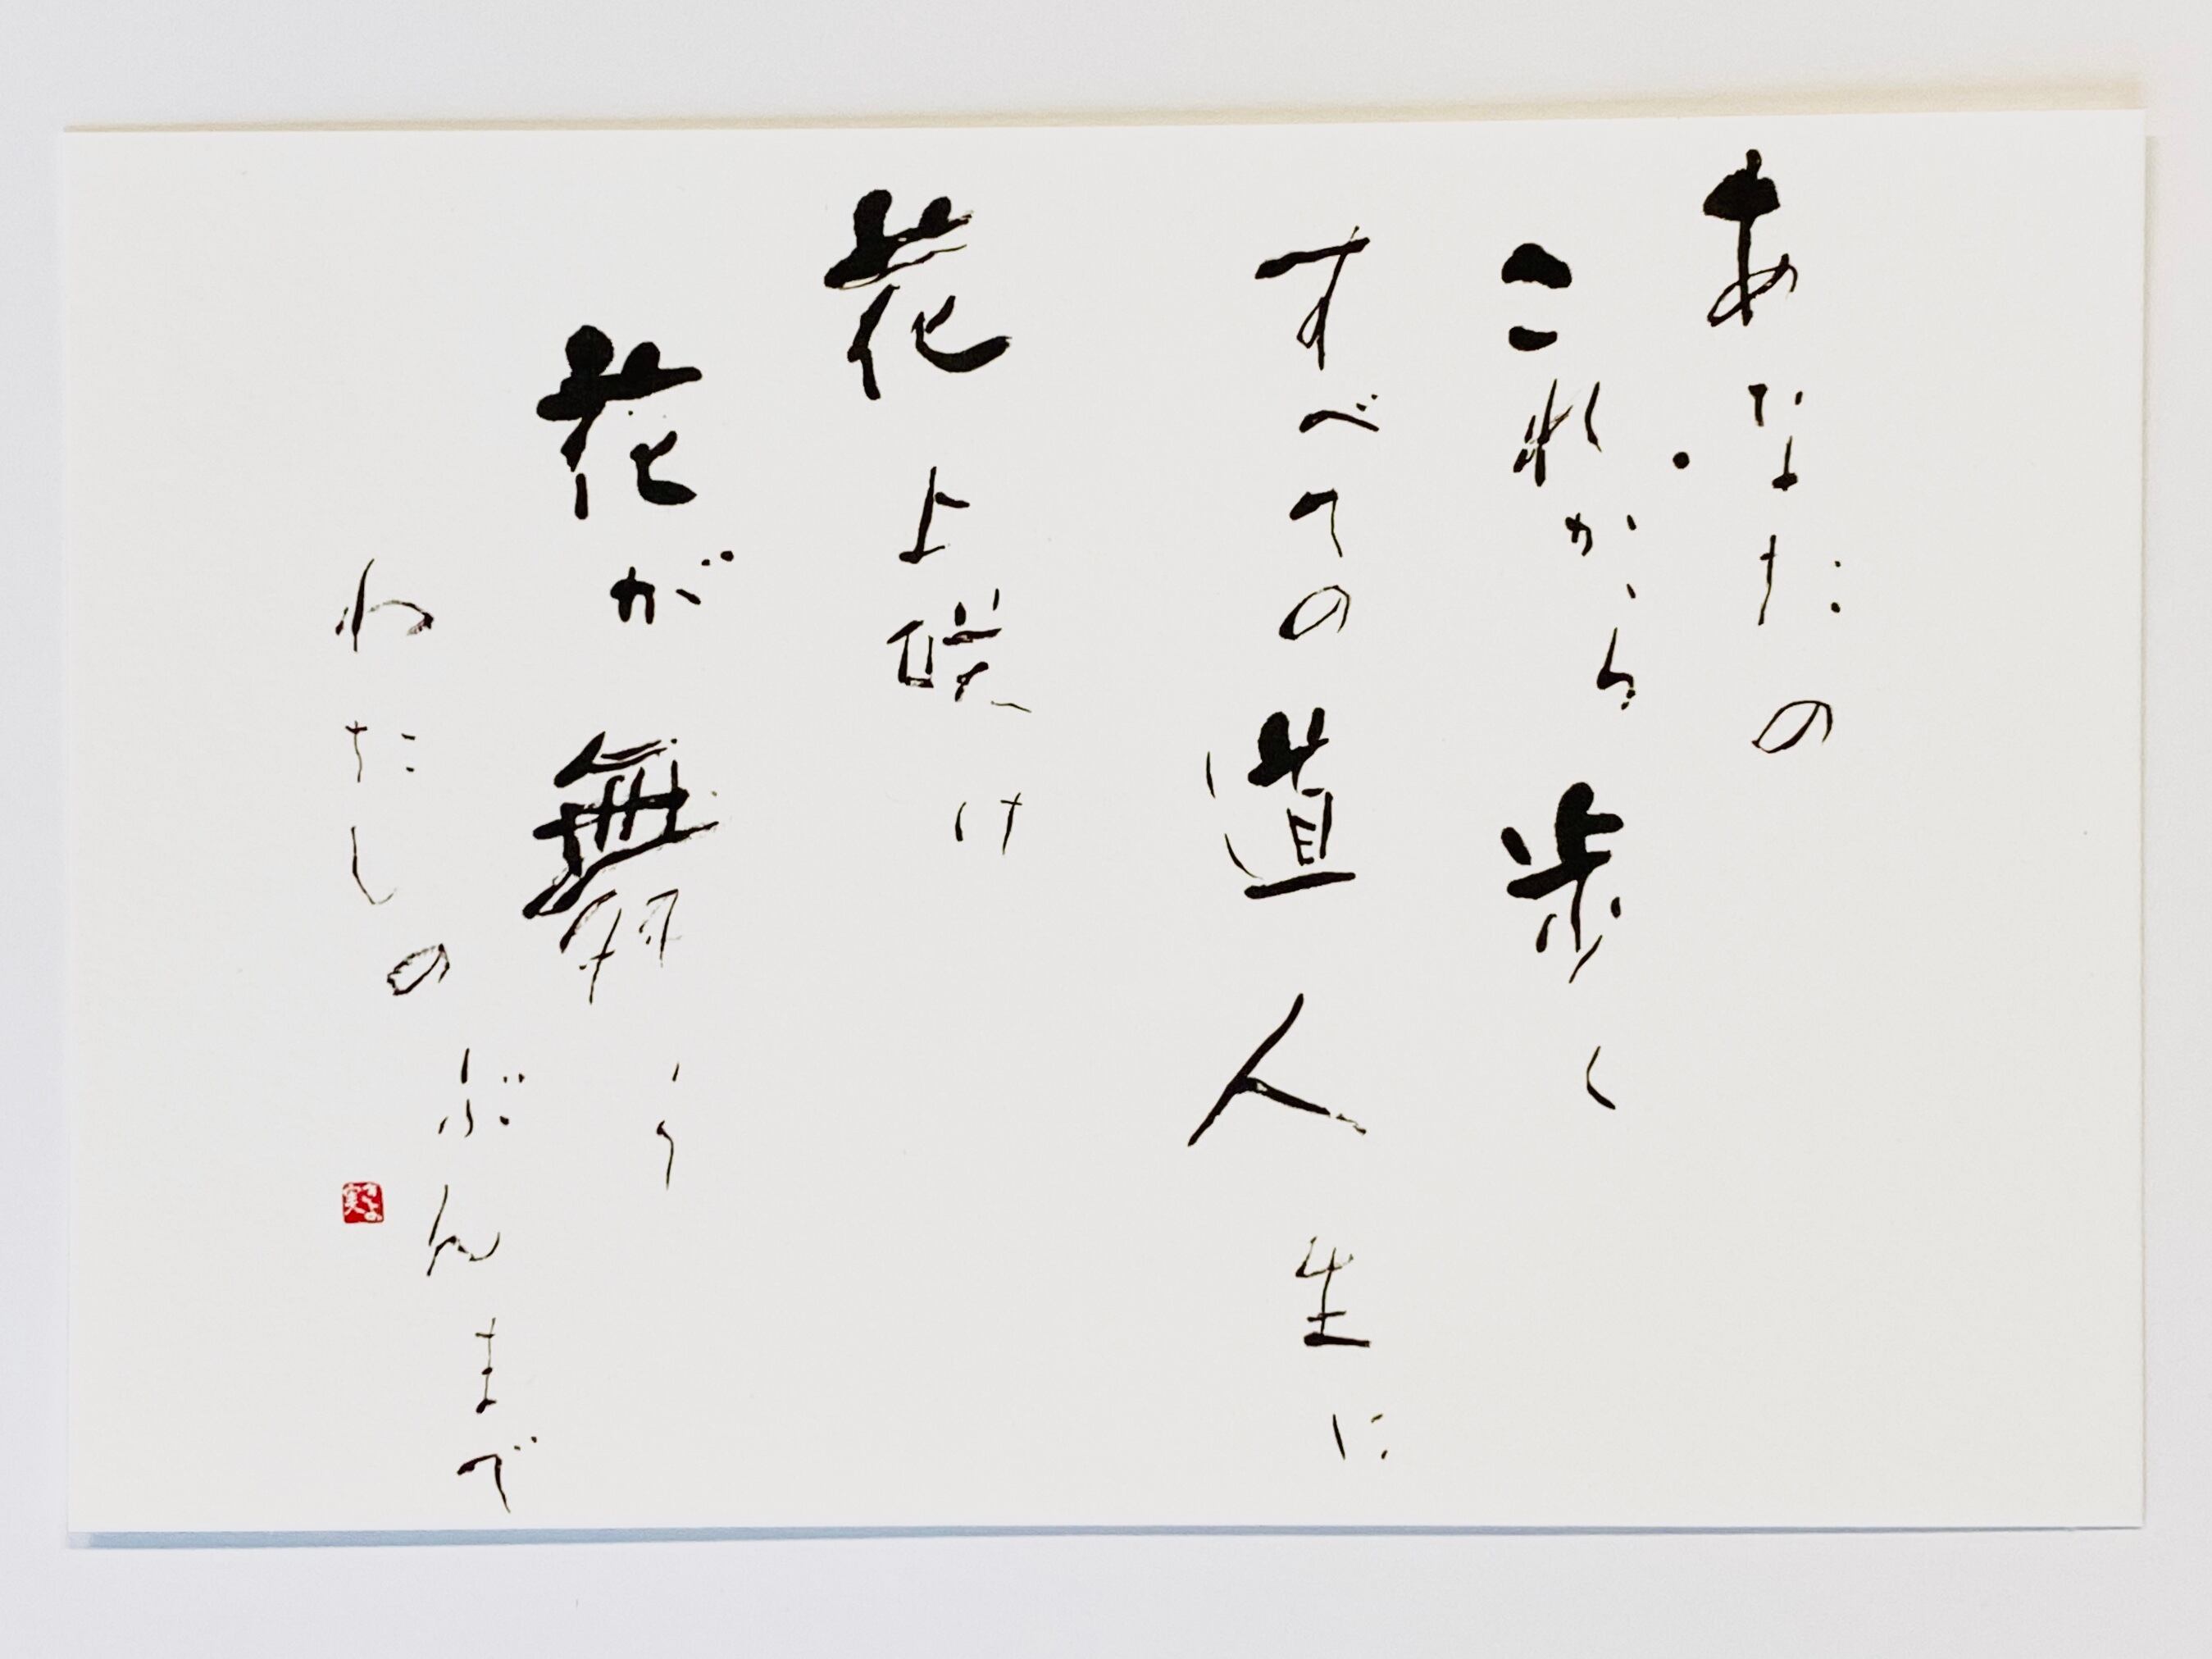 あなたの
これから歩く
すべての道人生に
花よ咲け
花が舞う
わたしのぶんまで